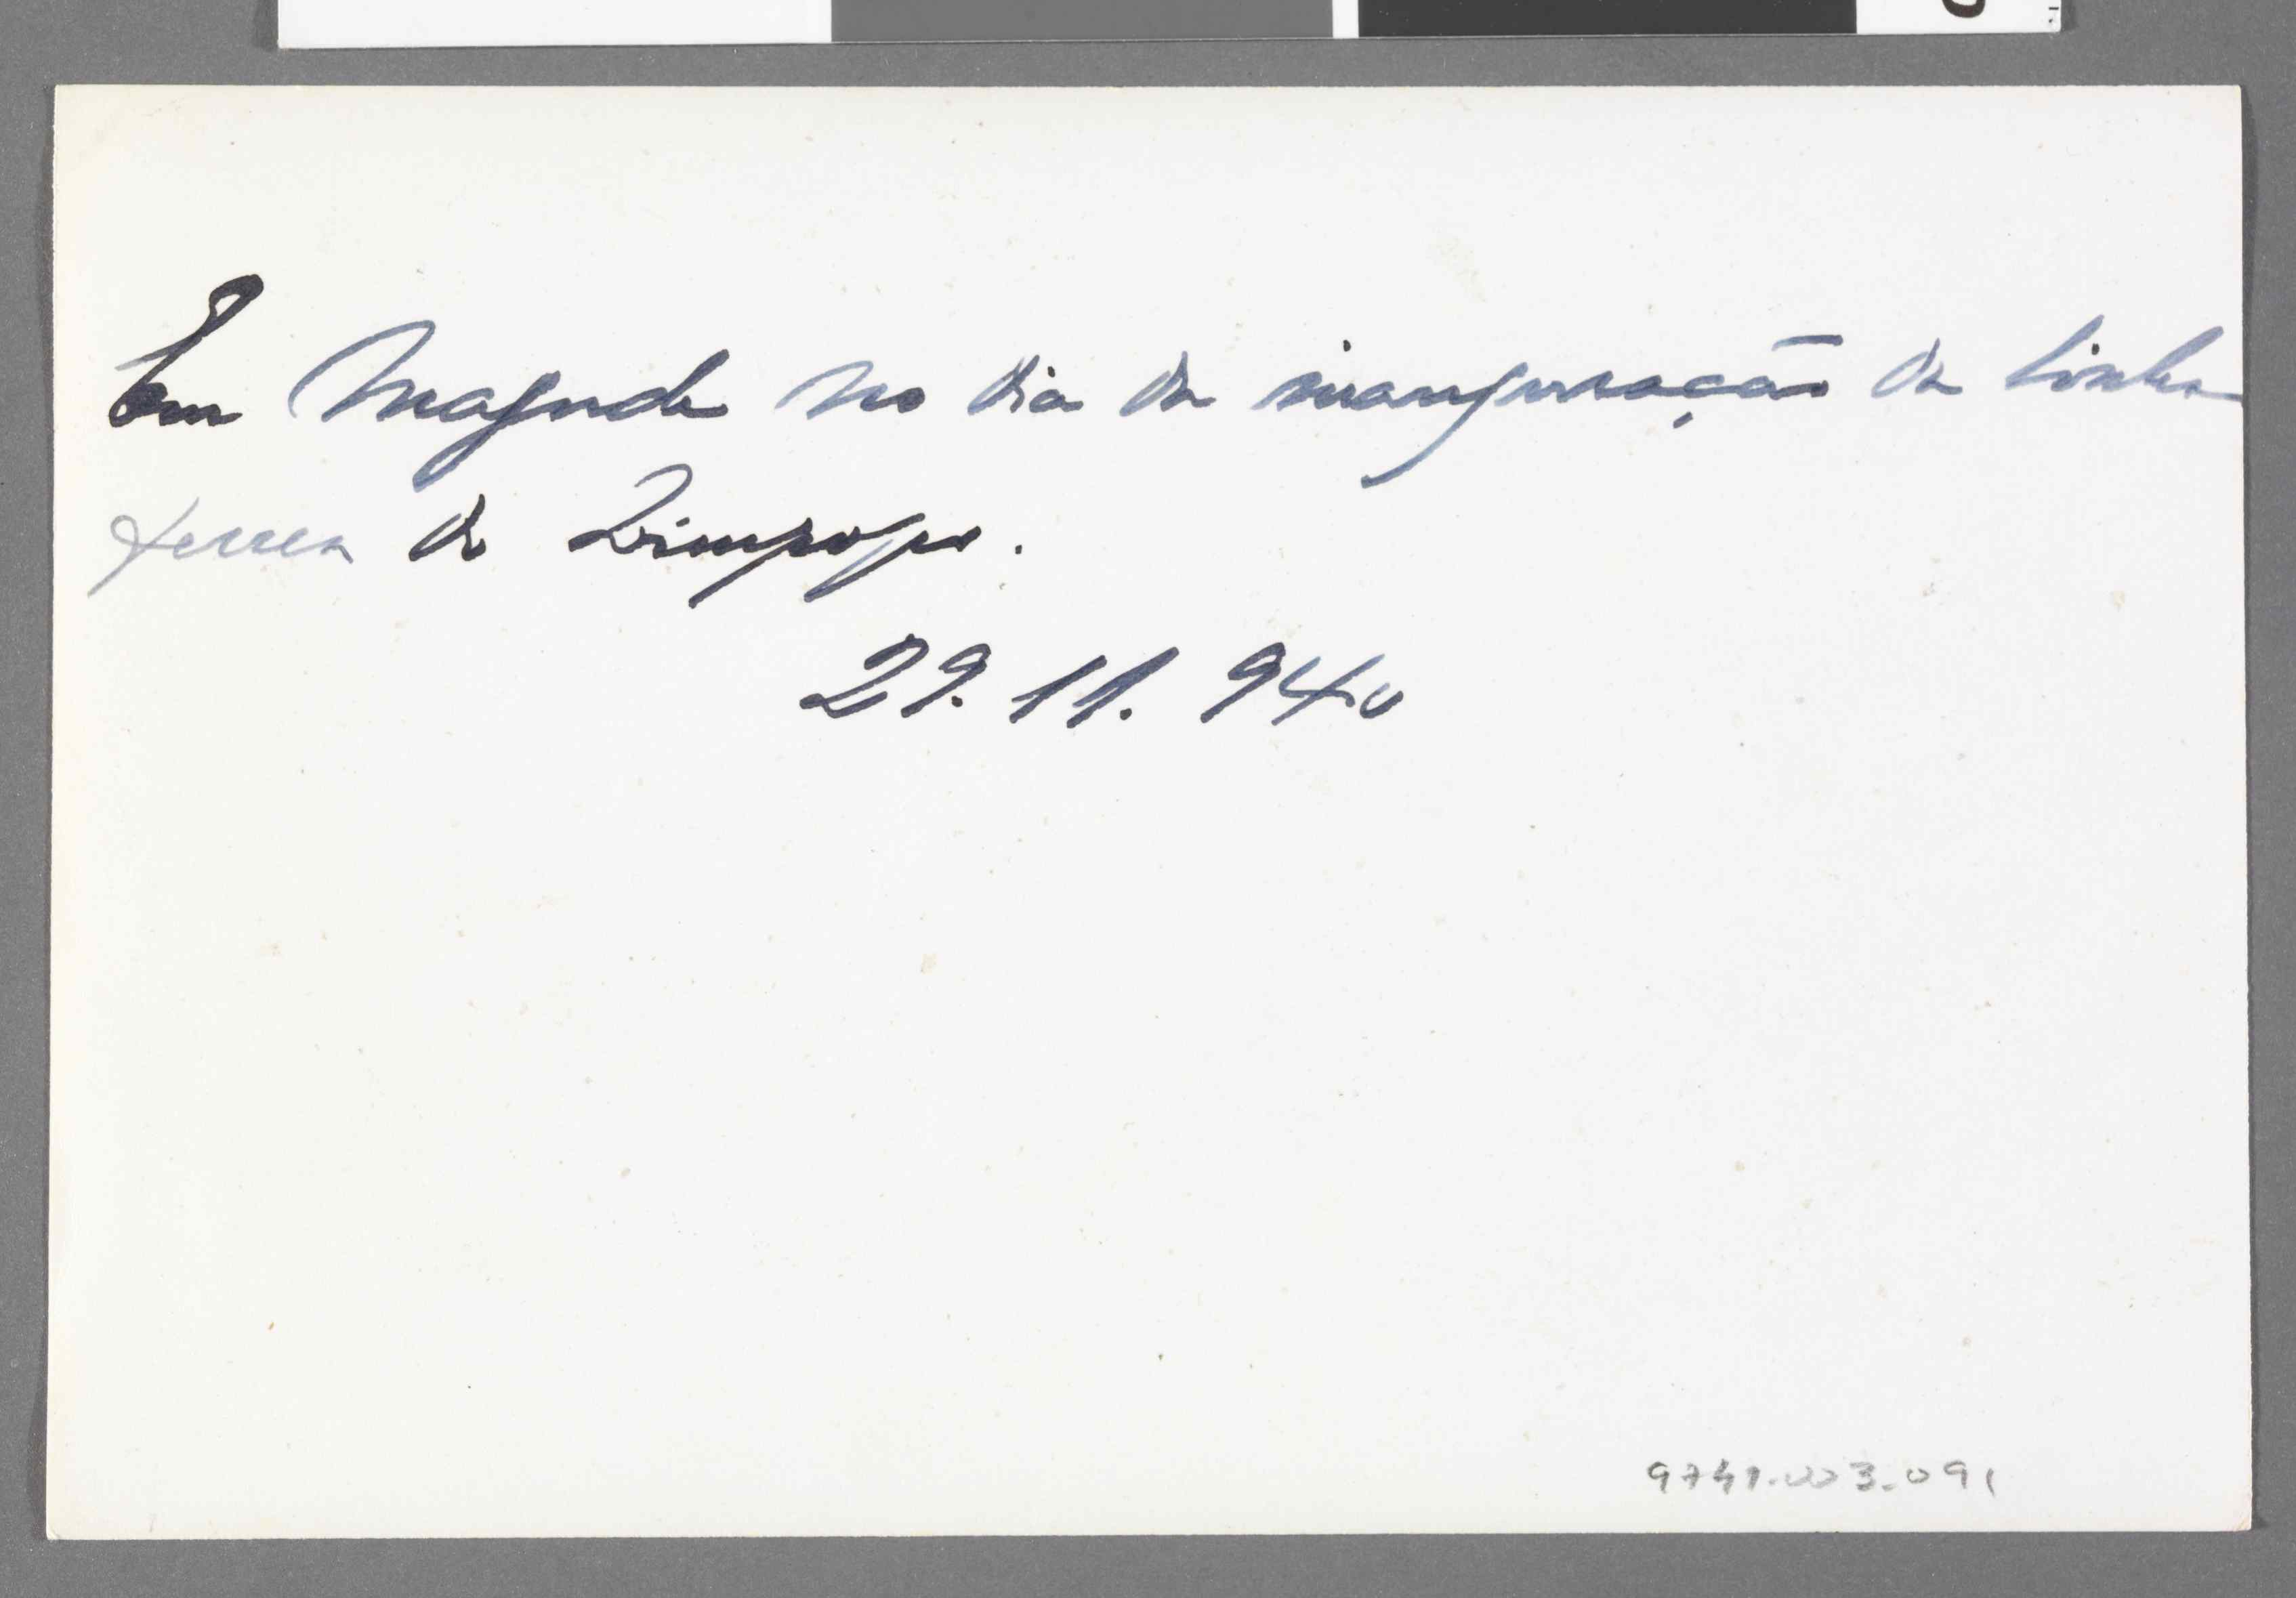 Em Magude no dia da inauguração da linha
ferrea do Limpopo.
29.11.940
9741.003.091